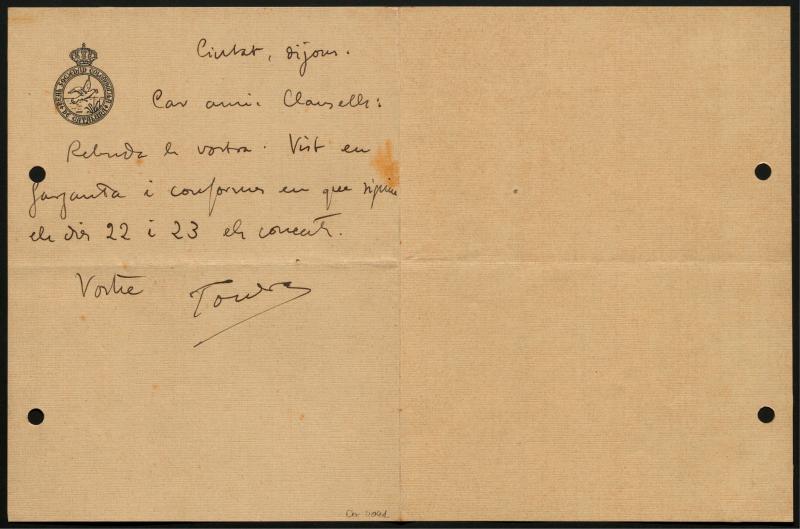 REAL SOCIEDAD COLOMBOFILA DE CATALUÑA
Ciutat, dijous.
Car amic Clausells:
Rebuda la vostra. Vist en
Garganta i conformes en que siguin
els dies 22 i 23 els concerts.
Vostre